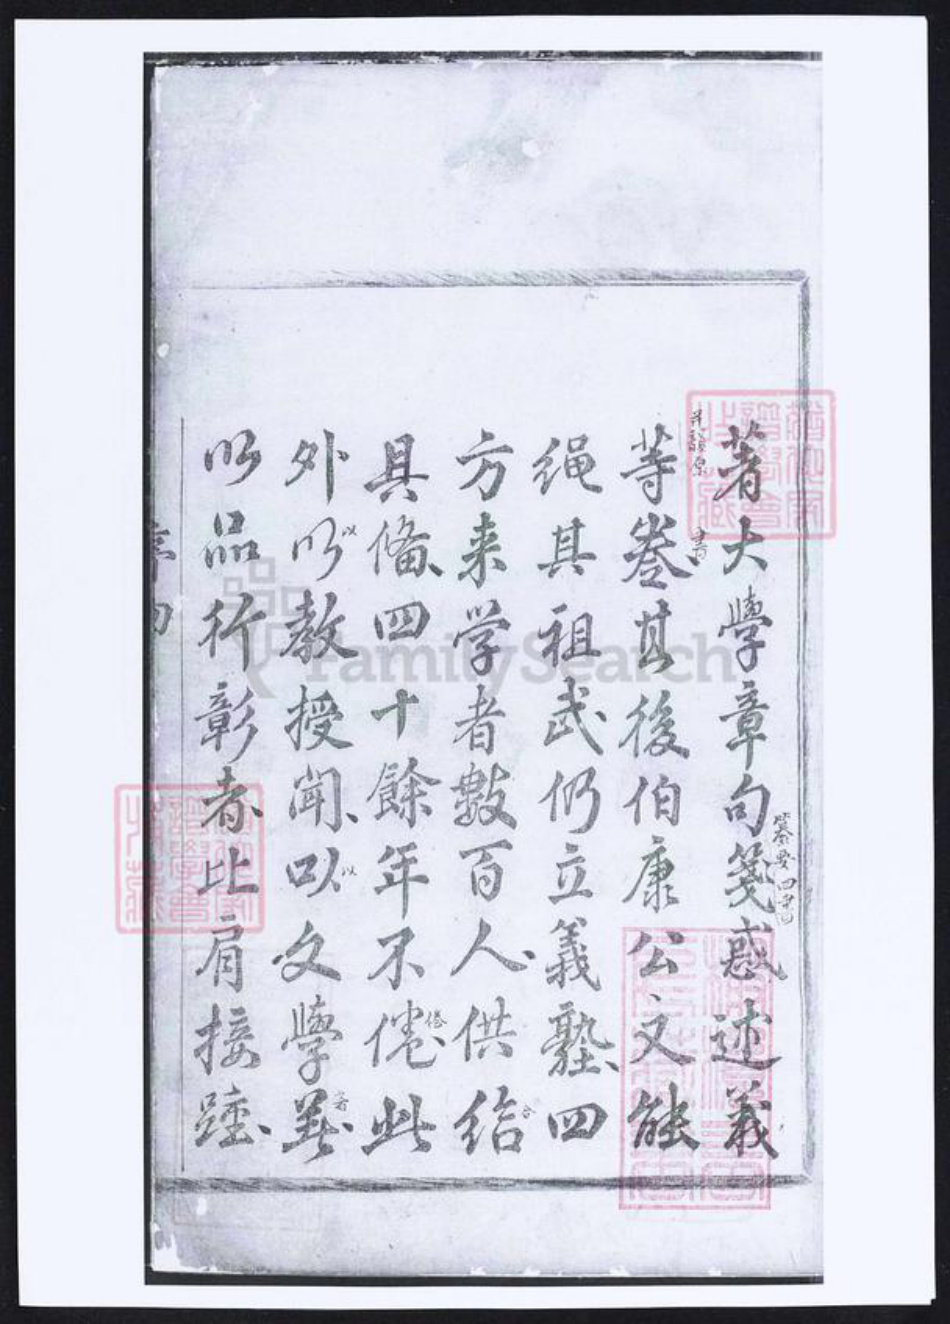 著大學章句箋惑述義
等卷其後伯康公又能
绳其祖武仍立義塾四
方来学者數百人供给
具俻四十餘年不倦此
外以教授聞以文學著
以品行彰者比肩接踵
FamilySearch